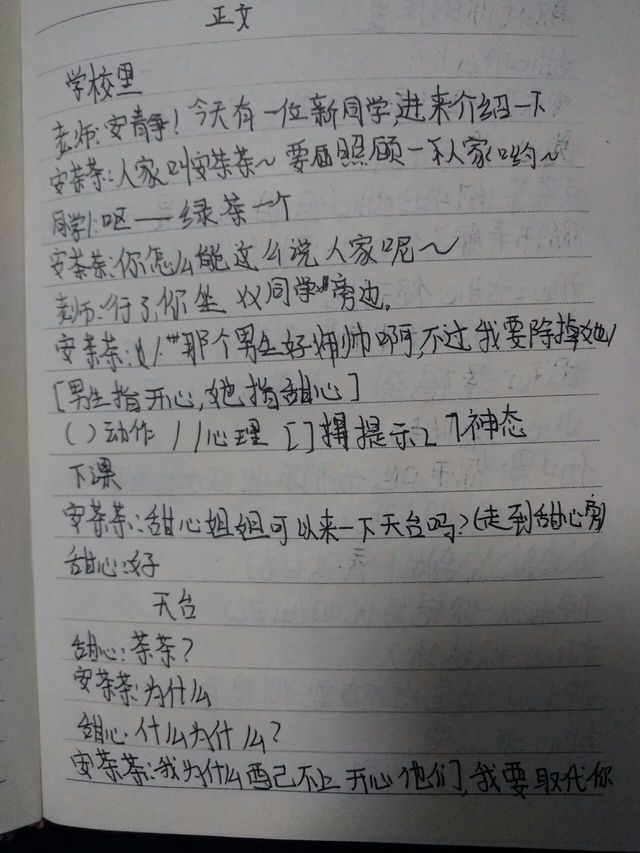 正文
学校里
老师:安静!今天有一位新同学进来介绍一下
安茶茶:人家叫安茶茶~要照顾一下人家哟~
同学1:呕——绿茶一个
安茶茶:你怎么能这么说人家呢~
老师:行了,你坐XX同学旁边。
安茶茶:/那个男生好帅啊,不过我要除掉她/
[男生指开心,她指甜心]
()动作 //心理 []提示 ⌊⌉神态
下课
安茶茶:甜心姐姐可以来一下天台吗?(走到甜心旁)
甜心:好
天台
甜心:茶茶?
安茶茶:为什么
甜心:什么为什么?
安茶茶:我为什么配不上开心他们,我要取代你